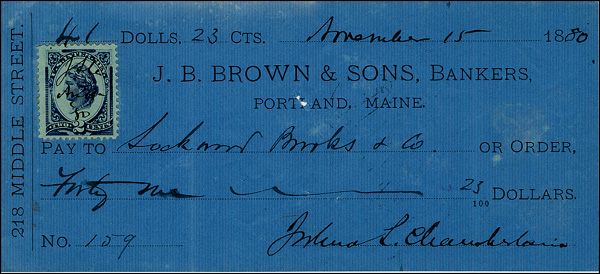 41 DOLLS. 23 CTS. November 15 1880
J. B. BROWN & SONS, BANKERS,
PORTLAND, MAINE.
218 MIDDLE STREET.
2 CENTS
PAY TO Lockwood Brooks & Co. OR ORDER,
Forty one 23/100 DOLLARS.
NO. 159 Joshua L. Chamberlain